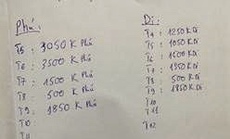 Phú:
T5 : 3050 K Phú
T6 : 3500 K Phú
T7 : 1500 K Phú
T8 : 500 K Phú
T9 : 1850 K Phú
T10
T11
Di:
T4 : 1250 K Di
T5 : 1050 K Di
T6 : 1600 K Di
T7 : 1350 K Di
T8 : 500 K Di
T9 : 1850 K Di
T10
T11
T12